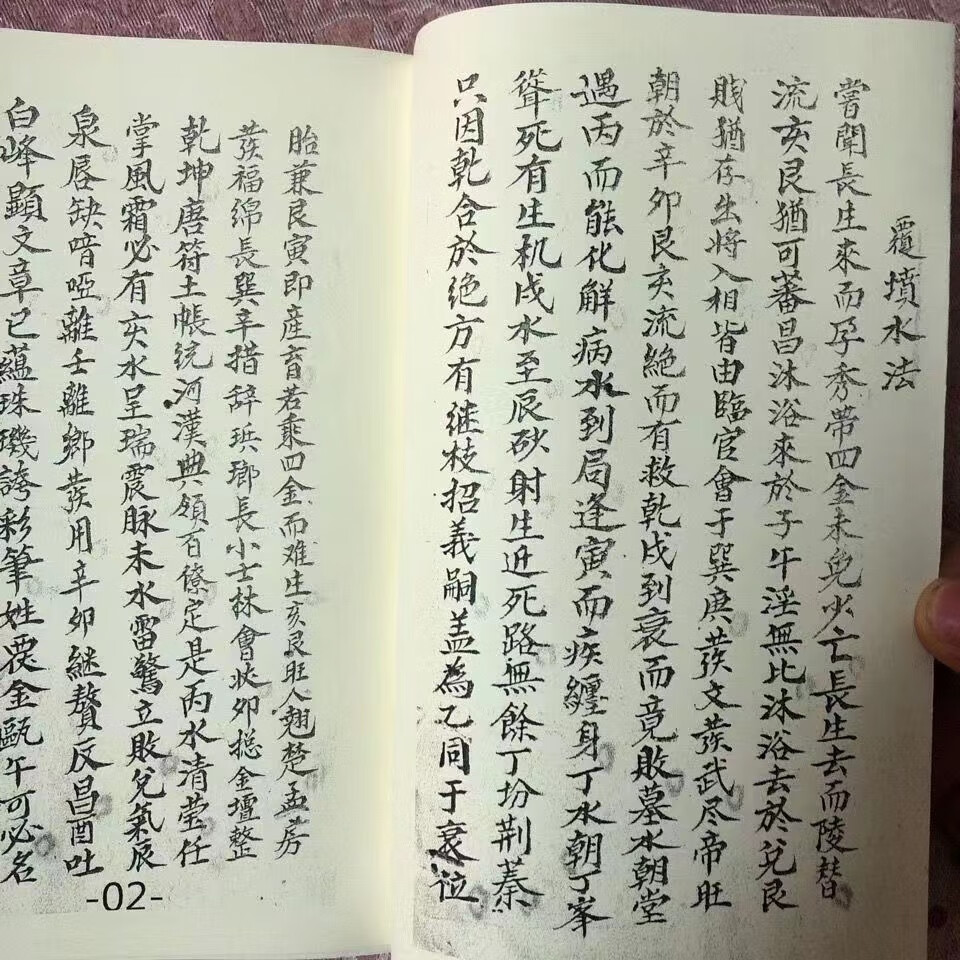 覆墳水法
嘗聞長生來而孕秀帶四金未免少亡長生去而陵替
流亥艮猶可蕃昌沐浴來於子午淫無比沐浴去於兌艮
賤猶存出將入相皆由臨官會于巽庚蕟文蕟武尽帝旺
朝於辛卯艮亥流絕而有救乾戌到衰而竟敗墓水朝堂
遇丙而能化解病水到局逢寅而疾纏身丁水朝丁峯
聳死有生机戌水至辰砂射生迊死路無餘丁坋荆蓁
只因乾合於绝方有继枝招義嗣盖為乙同于衰位
胎兼艮寅即產育若乘四金而难生亥艮旺人翹楚孟芳
蕟福綿長巽辛措辞珎瑯長小士林會状卯搃金壇整
乾坤唐符土帳统河漢典領百僚定是丙水清莹任
掌風霜必有亥水呈瑞震脉未水雷驚立敗兌氣辰
泉唇缺喑啞離壬離鄉蕟用辛卯継贅反昌酉吐
白峰顯文章巳蘊珠璣誇彩筆姓覆金甌午可必名
-02-